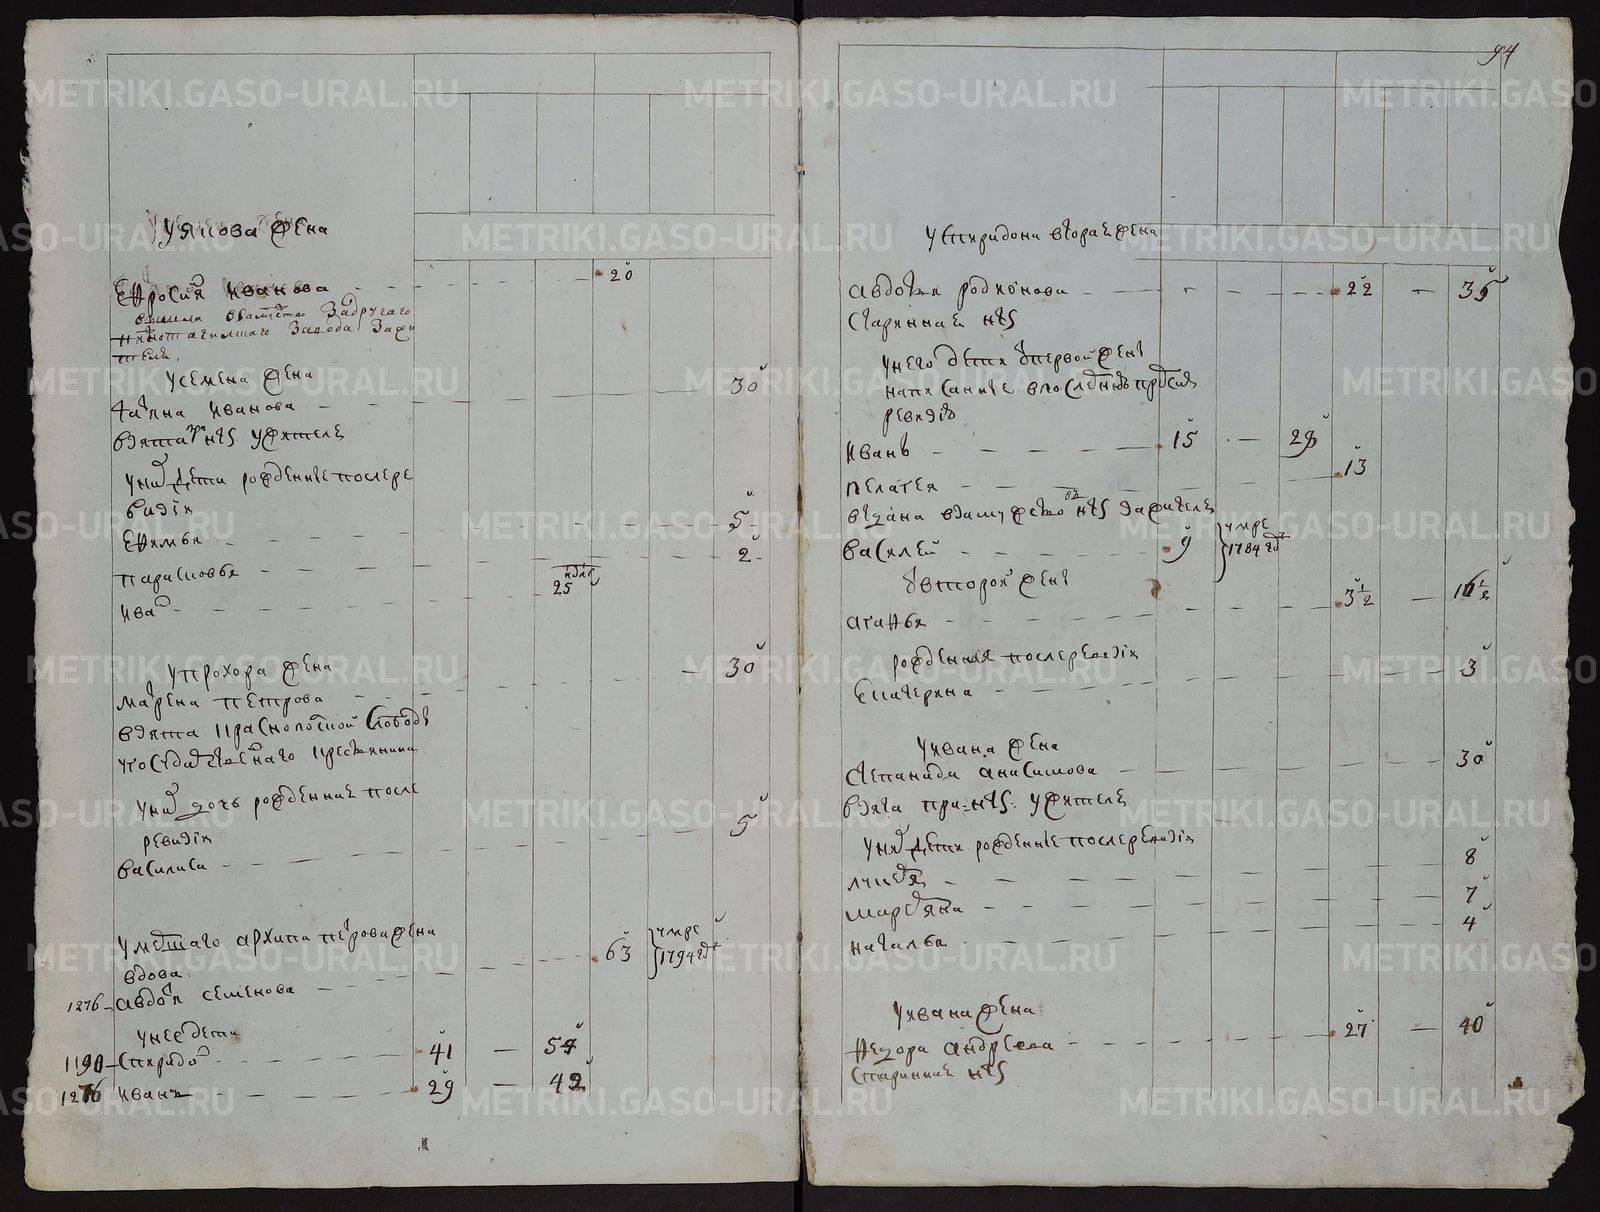 94
у якова жена
Ефросия Иванова — 20
вышла взамужство за другаго
нижнотагилшаго завода зажи
теля.
у семена жена
Татяна Иванова — 30
взята при нтз у жителя
у них дети рожденные после ре
визiи
Ефимья — 5
парасковья — 2
Иван — 25 недель
у прохора жена
марена петрова — 30
взята Краснопольской слободы
у государственнаго крестьянина
у них дочь рожденная после
ревизiи
василиса — 5
у умершаго архипа петрова жена
вдова
1276 авдотья семенова — 63 умре 1794 год
у нее дети
1190 спиридон — 41 — 54
1276 иванъ — 29 — 42
у спиридона вторая жена
авдотья родионова — 22 — 35
старинная нтз
у него дети от первой жены
написанные в последней пред сим
ревизiи
иванъ — 15 — 28
пелагея — 13
выдана взамужство в нтз за жителя
василей — 9 умре 1784 год
от второй жены
агафья — 3 1/2 — 16 1/2
рожденная после ревизiи
екатерина — 3
у ивана жена
степанида анисимова — 30
взята при нтз у жителя
у них дети рожденные после ревизiи
лукья — 8
мардяна — 7
наталья — 4
у ивана жена
федора андреева — 27 — 40
старинная нтз
METRIKI.GASO-URAL.RU